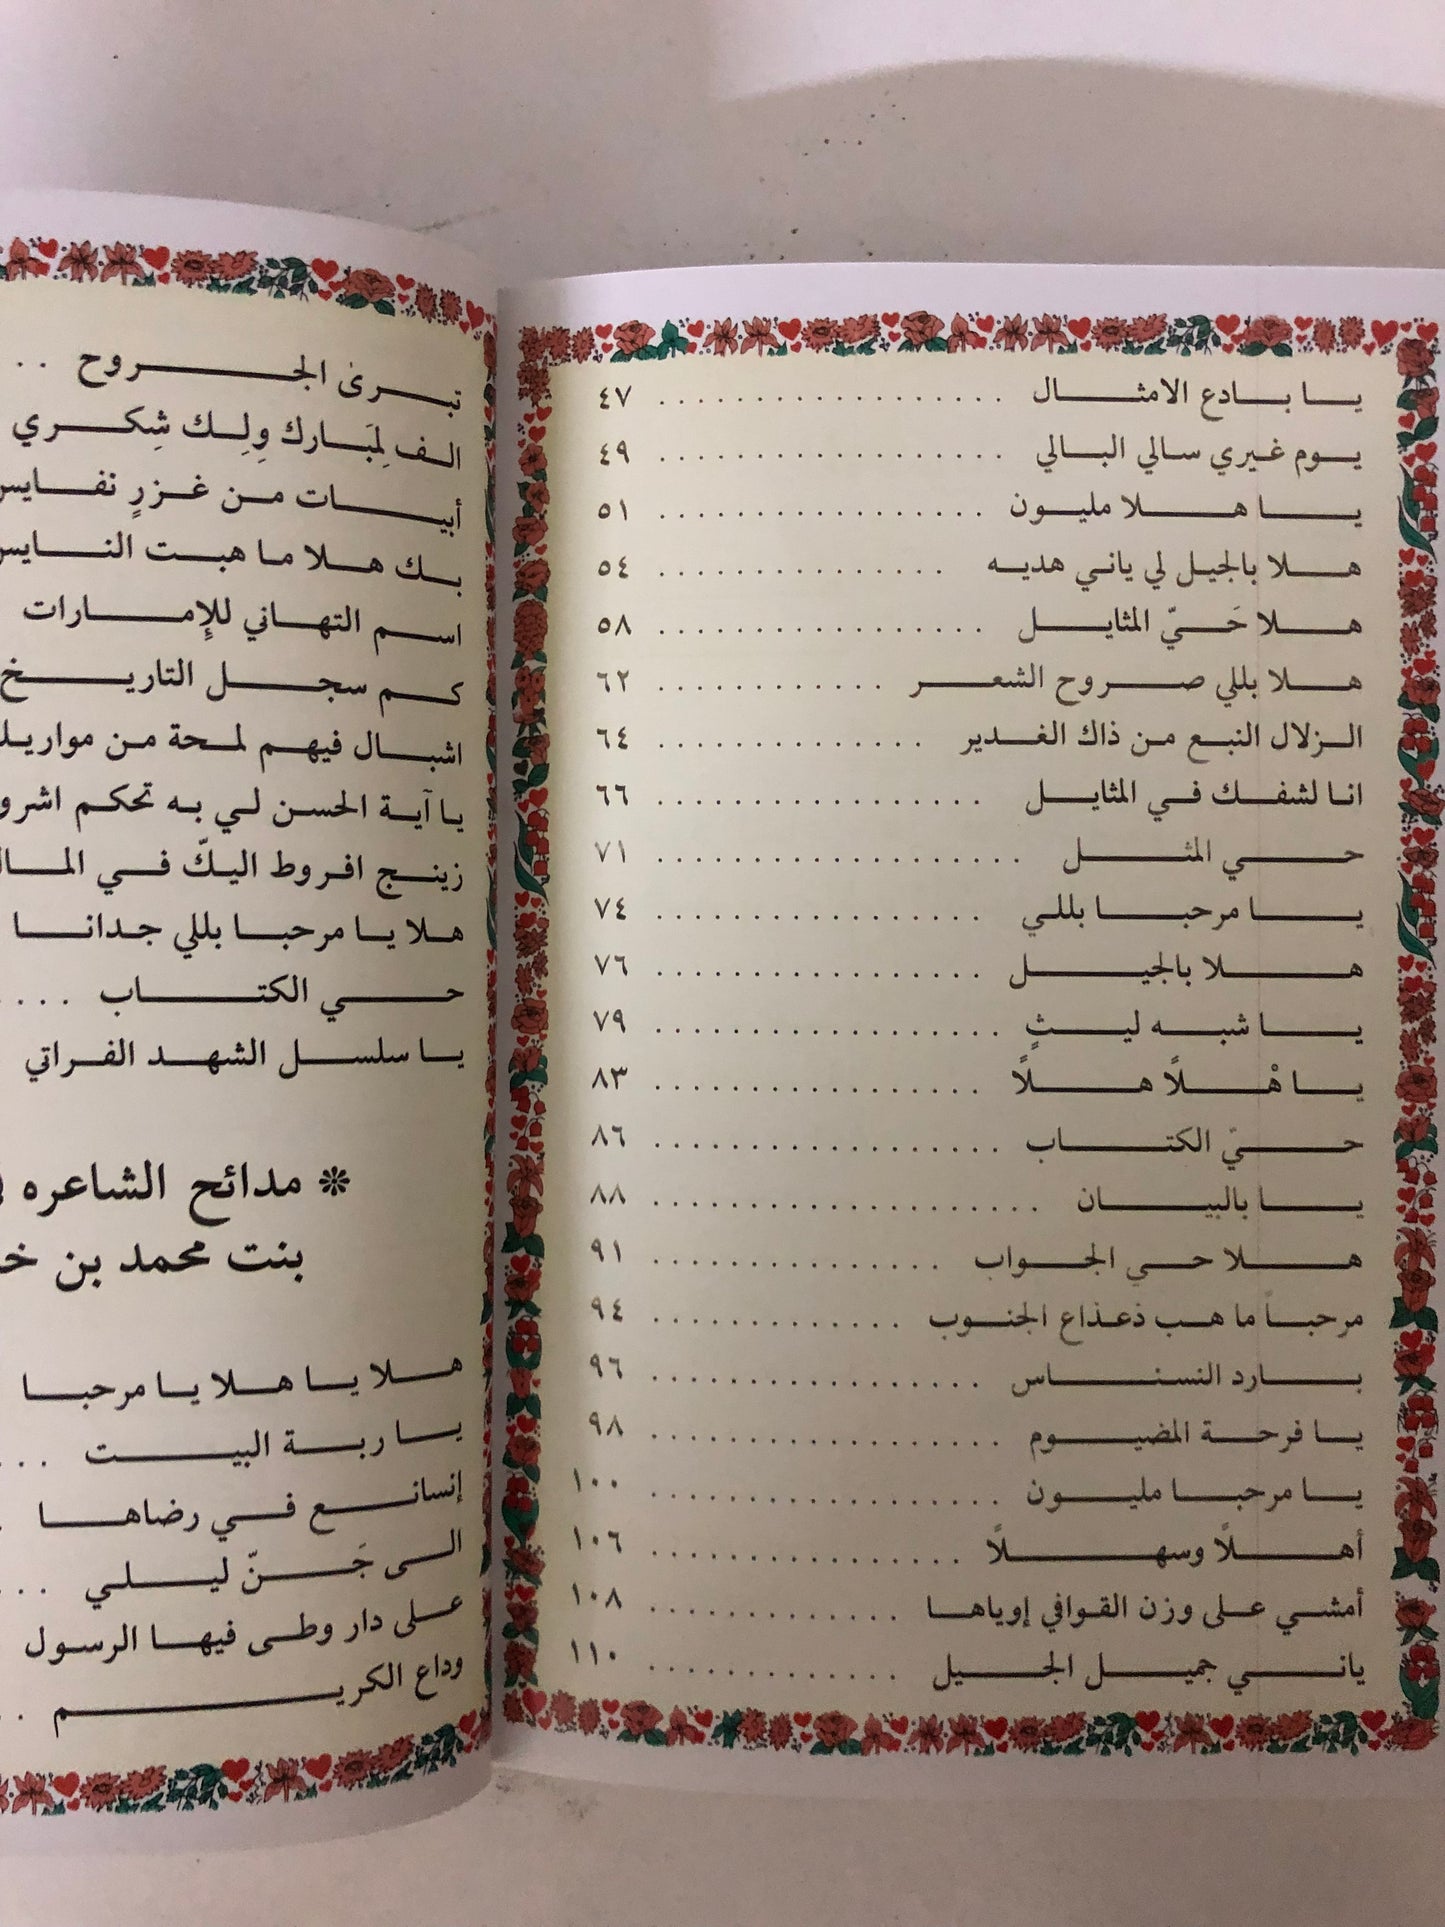 يا بادع الامثال . . . . . . . . . . . . . . . . . . ٤٧
يوم غيري سالي البالي . . . . . . . . . . . . . . . . . . ٤٩
يا هلا مليون . . . . . . . . . . . . . . . . . ٥١
هلا بالجيل لي ياني هديه . . . . . . . . . . . . . . . ٥٤
هلا حَيّ المثايل . . . . . . . . . . . . . . . . . ٥٨
هلا بللي صروح الشعر . . . . . . . . . . . . ٦٢
الزلال النبع من ذاك الغدير . . . . . . . . . . . . . . ٦٤
انا لشفك في المثايل . . . . . . . . . . . . . . . . . ٦٦
حي المثل . . . . . . . . . . . . . . . . . . . ٧١
يا مرحبا بللي . . . . . . . . . . . . . . . . . ٧٤
هلا بالجيل . . . . . . . . . . . . . . . . . ٧٦
يا شبه ليثٍ . . . . . . . . . . . . . . . . . . ٧٩
يا هْلاً هلاً . . . . . . . . . . . . . . . . . ٨٣
حيّ الكتاب . . . . . . . . . . . . . . . . . . . ٨٦
يا بالبيان . . . . . . . . . . . . . . . . . . . . ٨٨
هلا حي الجواب . . . . . . . . . . . . . . . ٩١
مرحباً ما هب ذعذاع الجنوب . . . . . . . . . . . . . ٩٤
بارد النسناس . . . . . . . . . . . . . . . . . ٩٦
يا فرحة المضيوم . . . . . . . . . . . . . . . . . . ٩٨
يا مرحبا مليون . . . . . . . . . . . . . . . . . . ١٠٠
أهلاً وسهلاً . . . . . . . . . . . . . . . . ١٠٦
أمشي على وزن القوافي إوياها . . . . . . . . . . . . . ١٠٨
ياني جميل الجيل . . . . . . . . . . . . . ١١٠
تبرى الجروح . .
الف لِمبَارك وِلِك شِكري
أبيات من غزرٍ نفايس
بك هلا ما هبت النايس
اسم التهاني للإمارات
كم سجل التاريخ
اشبال فيهم لمحة من
يا آية الحسن لي به تحكم
زينج افروط اليكّ في
هلا يا مرحبا بللي جدانا
حي الكتاب . . . .
يا سلسل الشهد الفراتي
❊ مدائح الشاعره
بنت محمد بن
هلا يا هلا يا مرحبا
يا ربة البيت . . .
إنسانع في رضاها .
الى جَنّ ليلي . . .
على دار وطى فيها الرسول
وداع الكريم . .